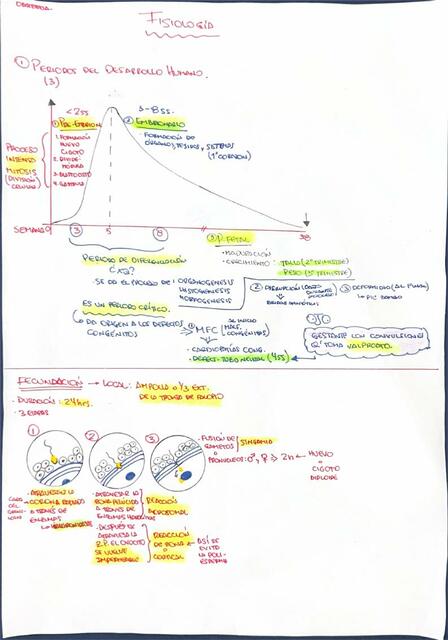 OBSTETRICIA
FISIOLOGÍA
① PERIODOS DEL DESARROLLO HUMANO.
(3)
<2SS
3-8SS.
① PRE-EMBRION
② EMBRIONARIO
PROCESO
INTENSO
MITOSIS
(DIVISIÓN
CELULAR)
1. FORMACIÓN
HUEVO
CIGOTO
2. DIVIDE
MÓRULA
3. BLASTOCITO
4. GASTRULA
- FORMACIÓN DE
ÓRGANOS, TEJIDOS, SISTEMAS
(1° CORAZON)
SEMANA 0
③
5
⑧
38
③ P. FETAL
- MADURACIÓN
- CRECIMIENTO: TALLA (2° TRIMESTRE)
PESO (3° TRIMESTRE)
PERIODO DE DIFERENCIACIÓN
- SE DA EL PROCESO DE: ORGANOGENESIS
HISTOGENESIS
MORFOGENESIS
ES UN PERIODO CRÍTICO.
DA ORIGEN A LOS DEFECTOS
CONGÉNITOS
① MFC
(MALF.
CONGÉNITAS)
- CARDIOPATÍAS CONG.
- DEFECT. TUBO NEURAL (4SS)
② DISRUPCIÓN
BRIDAS AMNIÓTICAS
③ DEFORMACIÓN (AL FINAL)
PIE BAMBO
GESTANTE CON CONVULSIONES
Q' TOMA VALPROATO.
FECUNDACIÓN → LOCAL: AMPOLLA O 1/3 EXT.
DE LA TROMPA DE FALOPIO
- DURACIÓN: 24 hrs.
- 3 ETAPAS
① ② ③
- FUSIÓN DE
GAMETOS
O
PRONUCLEOS: ♂, ♀ → 2n ← HUEVO
O
CIGOTO
DIPLOIDE
SINGAMIA
- ATRAVIESA LA
CORONA RADIADA
A TRAVES DE
ENZIMAS
HIALURONIDASAS
- ATRAVIESA LA
ZONA PELÚCIDA
A TRAVÉS DE
ENZIMAS
REACCIÓN
ACROSOMAL
- DESPUÉS DE
ATRAVIESA LA
Z.P. EL OVOCITO
SE VUELVE
IMPERMEABLE
REACCIÓN
DE ZONA
O
CORTICAL
← ASÍ SE
EVITA
LA POLI-
ESPERMIA